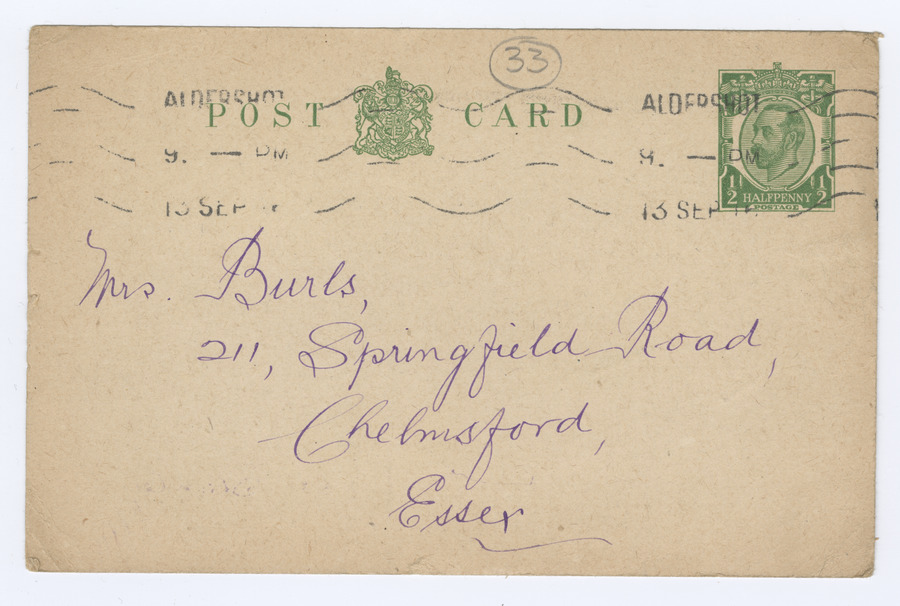 33
POST CARD
ALDERSHOT
9. — PM
13 SEP
ALDERSHOT
9. — PM
13 SEP
1/2 HALFPENNY 1/2
POSTAGE
Mrs. Burls,
211, Springfield Road,
Chelmsford,
Essex